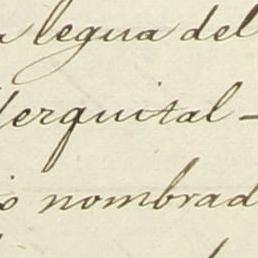 a legua del
erquital -
nombrad